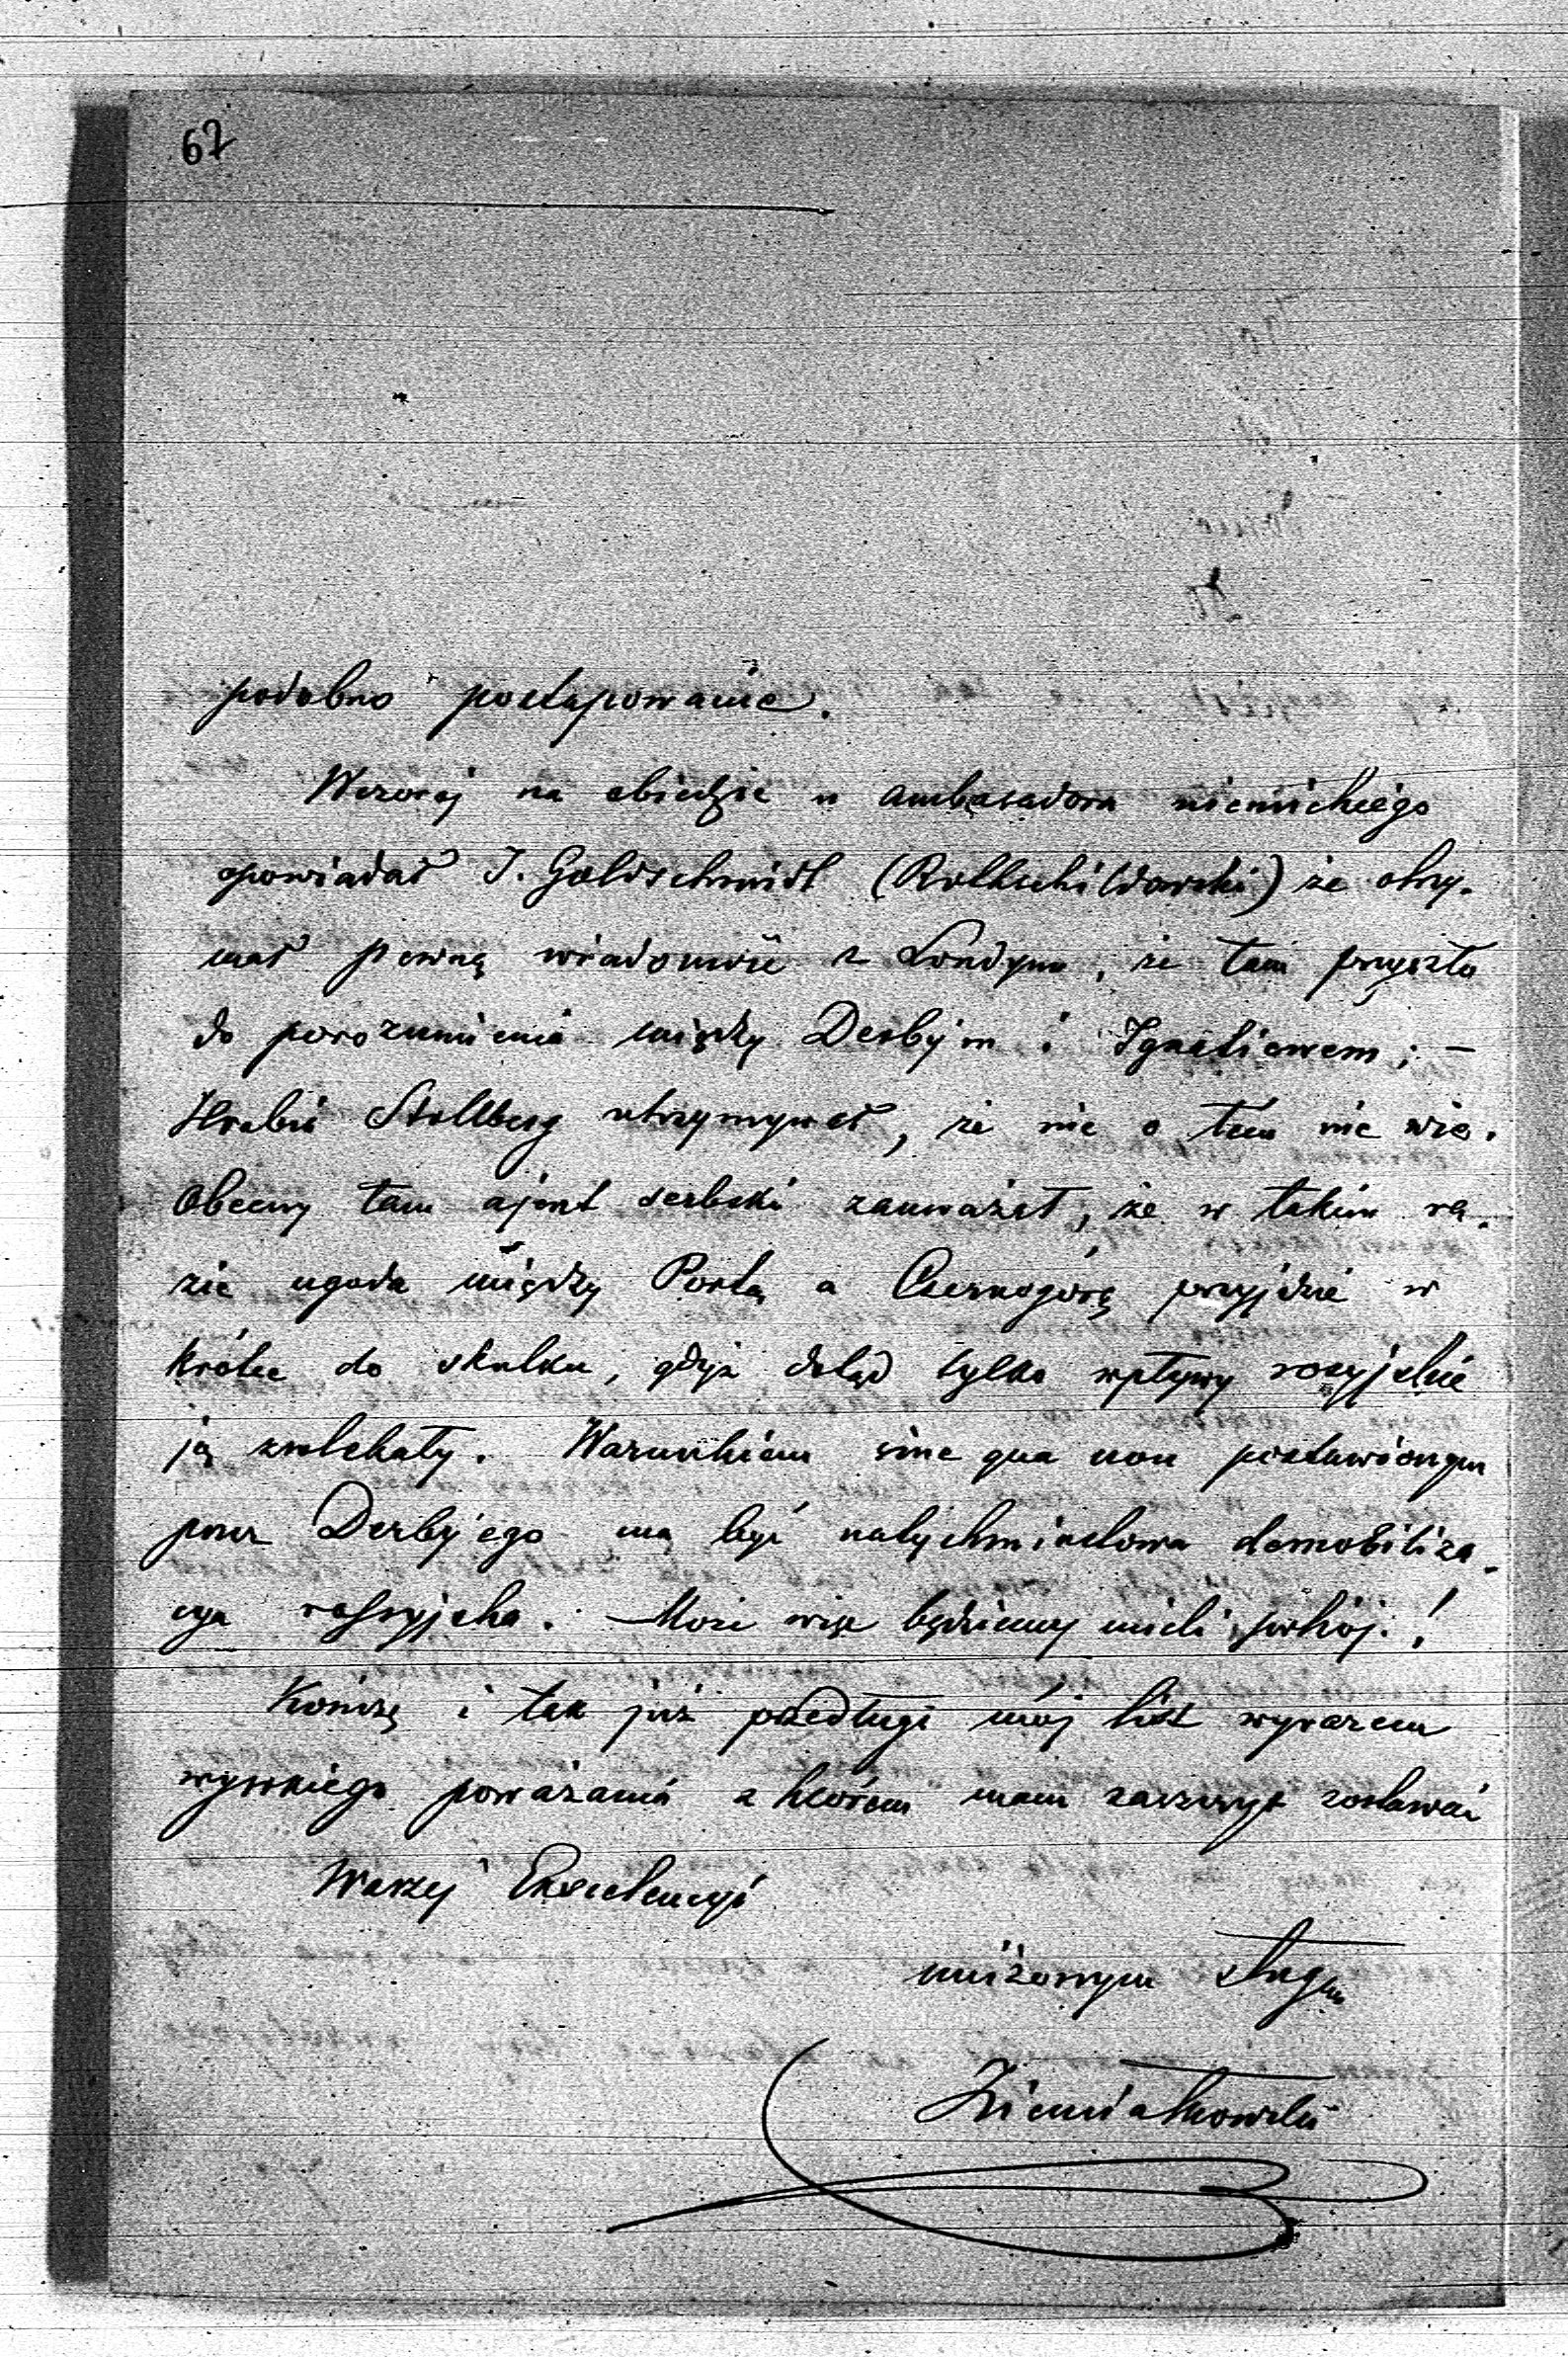 67
podobno postąpowanie.
Wczoraj na obiedzie u ambasadora niemieckiego
opowiadał J. Goldschmidt (Rothschildowski) że otrzy-
mał pewną wiadomość z Londynu, że tam przyszło
do porozumienia między Derbym i Ignatiewem; —
Hrabia Stollberg utrzymywał, że nic o tem nie wie.
Obecny tam ajent serbski zauważał, że w takim ra-
zie ugoda między Portą a Czernogórą przyjdzie w
krótce do skutku, gdyż dotąd tylko wpływy rosyjskie
ją zwlekały. Warunkiem sine qua non postawionym
przez Derby'ego ma być natychmiastowa demobiliza-
cya rossyjska. Może więc będziemy mieli pokój!
Kończę i tak już przedługi mój list wyrazem
wysokiego poważania z którem mam zaszczyt zostawać
Waszej Excelencyi
uniżonym sługą
Ziemiałkowski